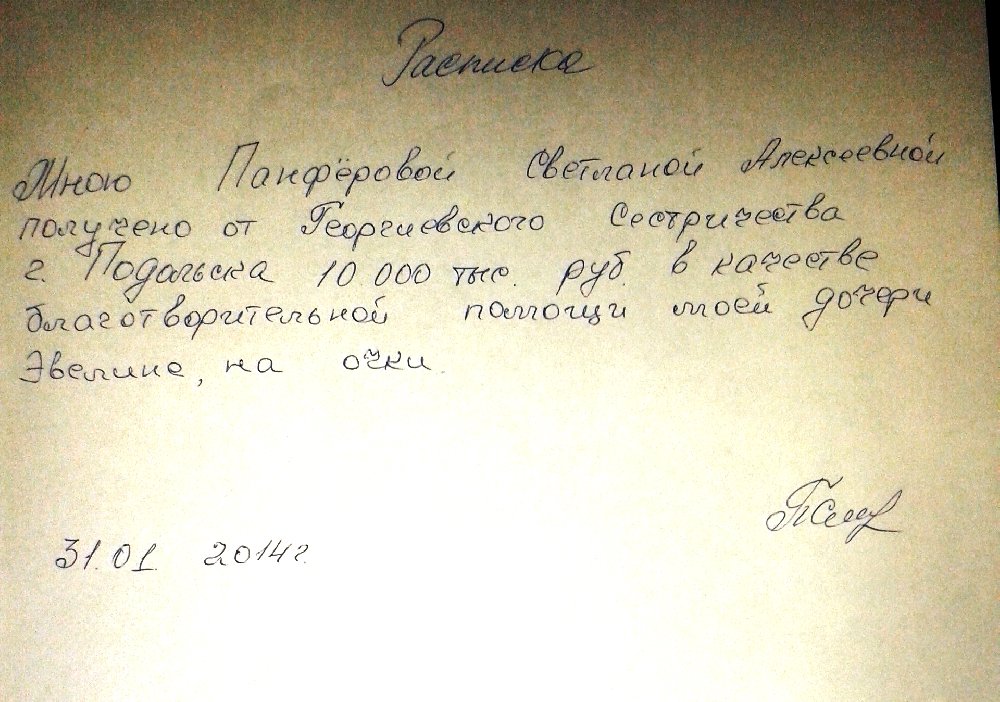 Расписка
Мною Панфёровой Светланой Алексеевной
получено от Георгиевского Сестричества
г. Подольска 10 000 тыс. руб. в качестве
благотворительной помощи моей дочери
Эвелине, на очки.
31.01 2014г.